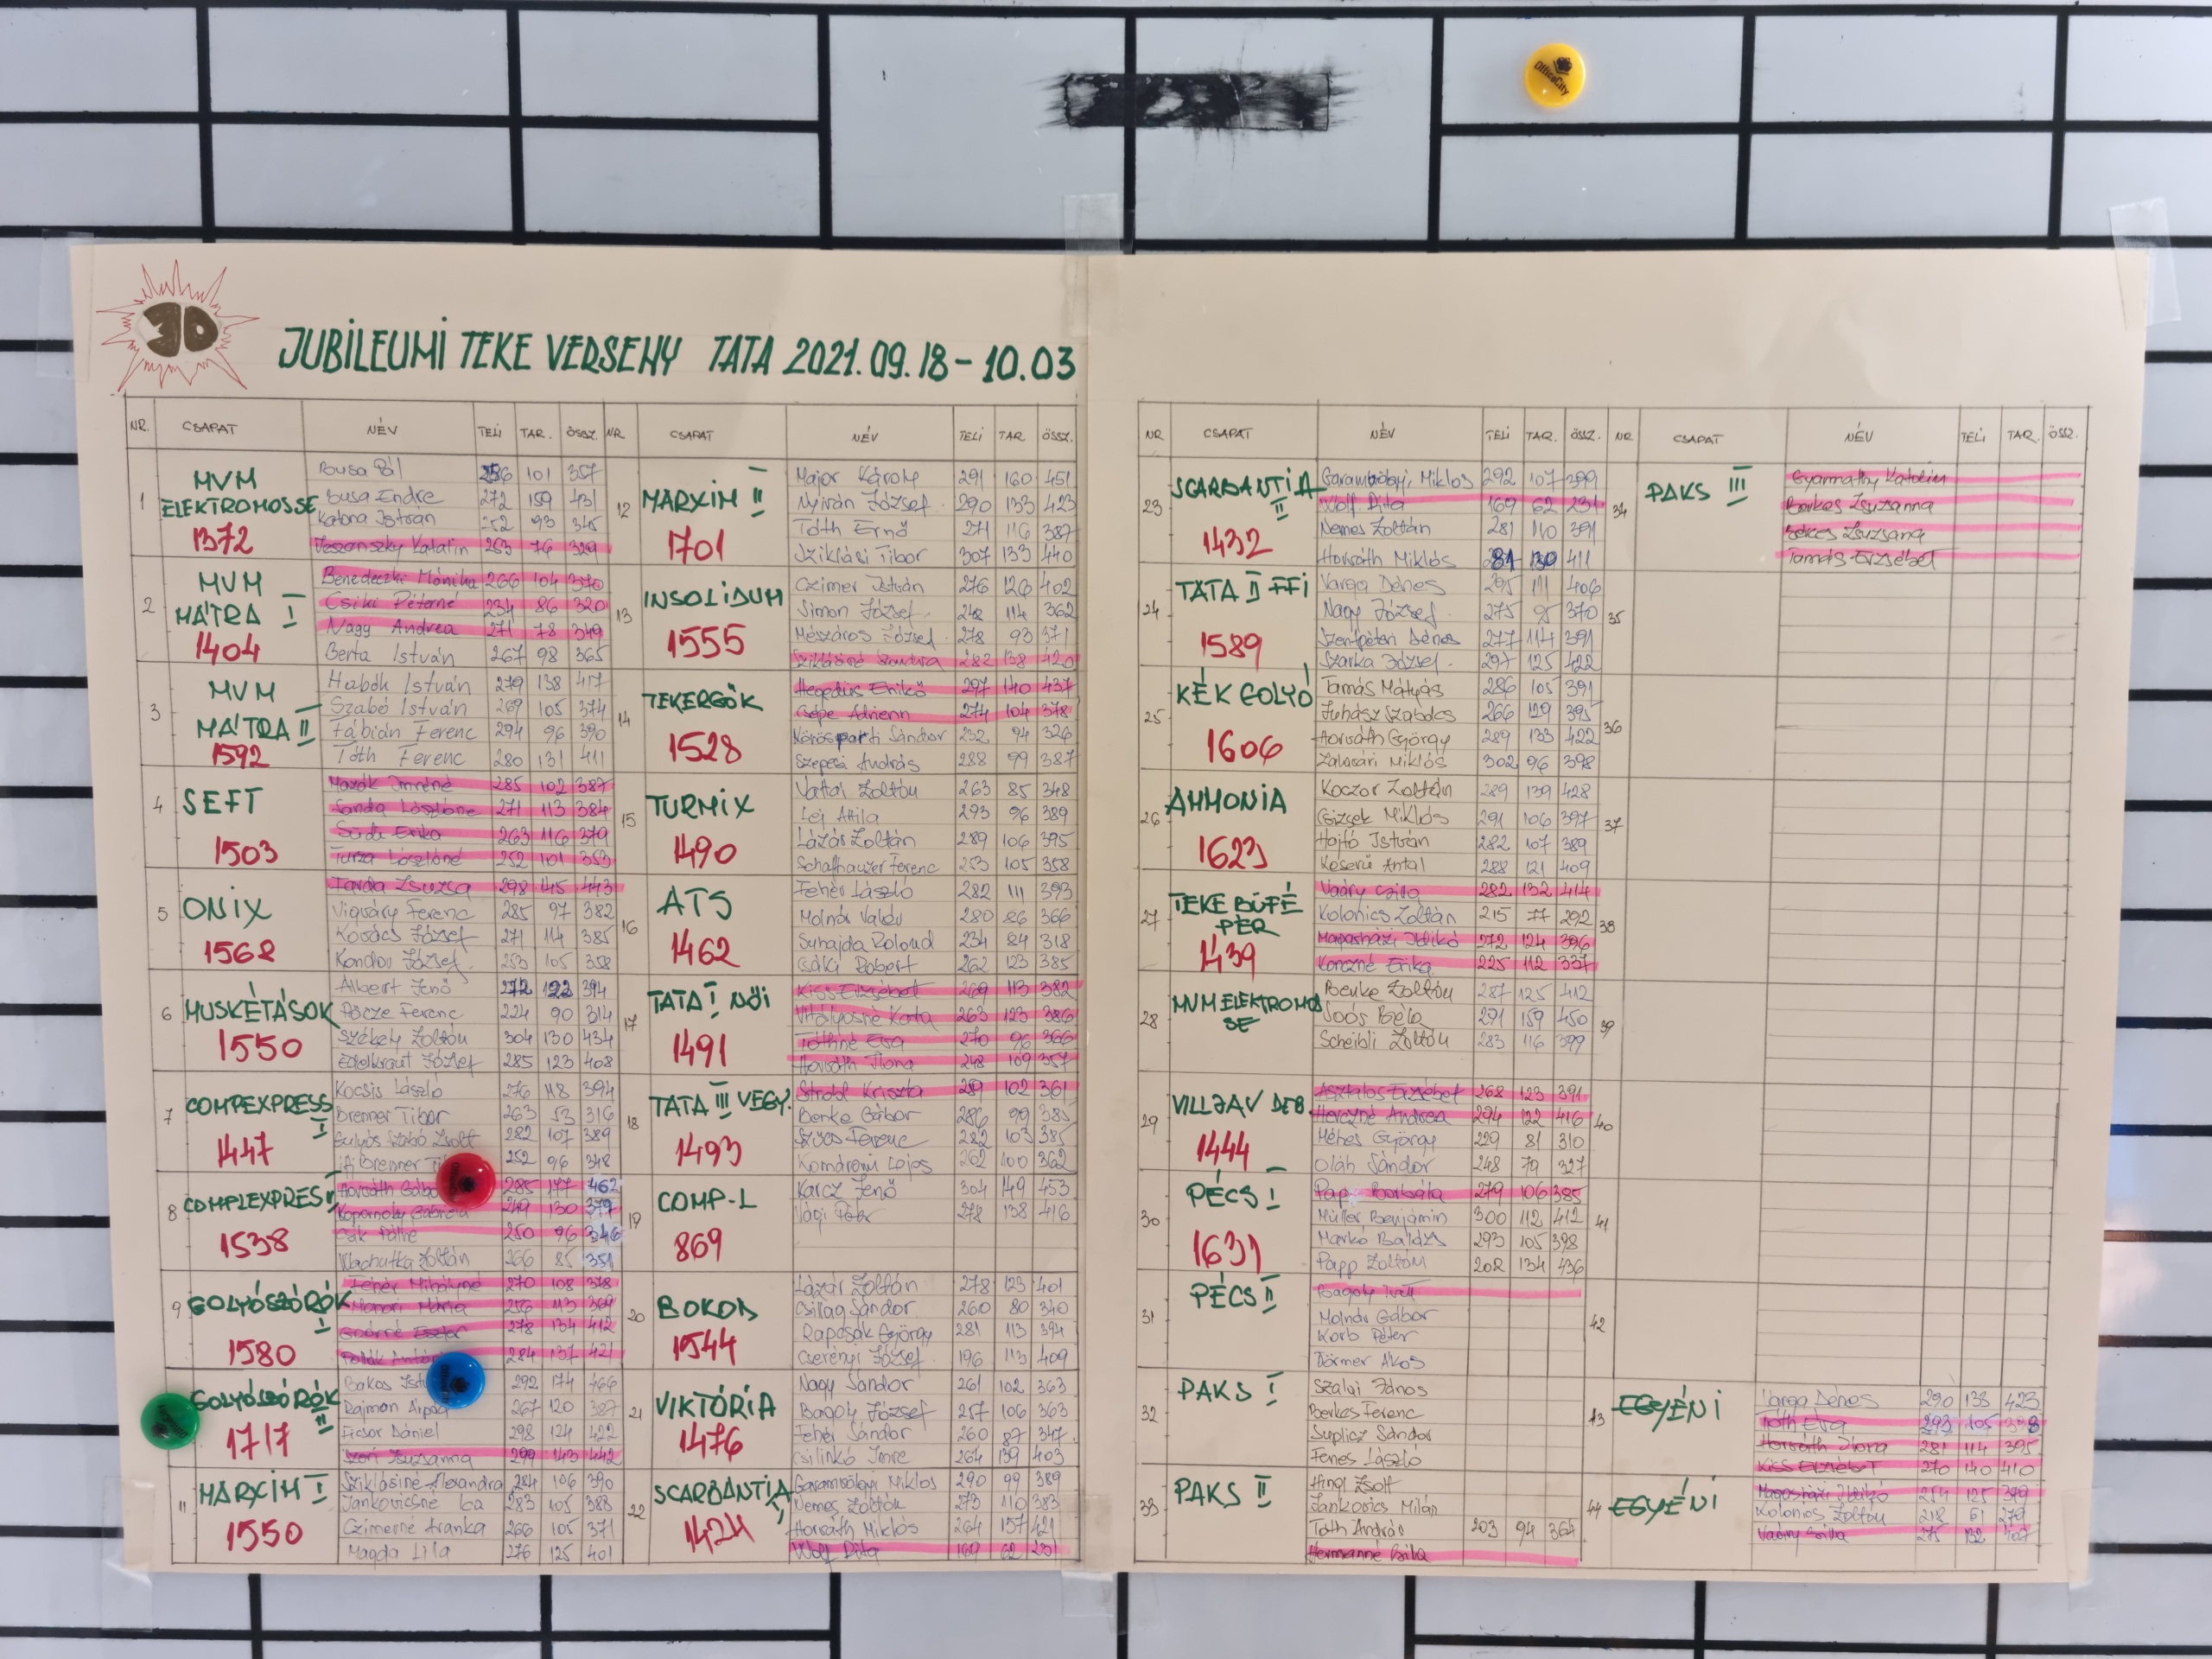 30
JUBILEUMI TEKE VERSENY TATA 2021.09.18 - 10.03
NR. CSAPAT NÉV TELI TAR. ÖSSZ.
1 MVM ELEKTROMOS SE 1372
Pál 101 357
Endre 272 159 431
Katona István 252 93 345
Katalin 253 76 329
2 MVM MÁTRA I 1404
Benedeczki Mónika 266 104 370
Csiki Péterné 234 86 320
Nagy Andrea 271 78 349
Berta István 267 98 365
3 MVM MÁTRA II 1592
István 279 138 417
Szabó István 269 105 374
Fábián Ferenc 294 96 390
Tóth Ferenc 280 131 411
4 SEFT 1503
Imréné 285 102 387
Lászlóné 271 113 384
Erika 263 116 379
Turza Lászlóné 252 101 353
5 ONIX 1568
Zsuzsa 298 145 443
Vigváry Ferenc 285 97 382
Kovács József 271 114 385
József 253 105 358
6 MUSKÉTÁSOK 1550
Albert Jenő 272 122 394
Pőcze Ferenc 224 90 314
Székely Zoltán 304 130 434
Edelkraut József 285 123 408
7 COMPEXPRESS I 1447
Kocsis László 276 118 394
Brenner Tibor 263 53 316
Szabó Zsolt 282 107 389
ifj Brenner 252 96 348
8 COMPLEXPRES II 1538
Horváth 285 177 462
249 130 379
250 96 346
Wachutka Zoltán 266 85 351
9 GOLYÓSZÓRÓK I 1580
Fehér Mihályné 270 108 378
Mária 256 113 369
Eszter 278 134 412
284 137 421
GOLYÓSZÓRÓK II 1717
Bakos 292 174 466
Rajman 267 120 387
Ficsor Dániel 298 124 422
Zsuzsanna 299 143 442
11 MARXIM I 1550
Sziklásiné Alexandra 284 106 390
Jankovicsné 283 105 388
Czimerné Aranka 266 105 371
Magda Lila 276 125 401
NR CSAPAT NÉV TELI TAR ÖSSZ.
12 MARXIM II 1701
Major Károly 291 160 451
Nyirán József 290 133 423
Tóth Ernő 271 116 387
Sziklási Tibor 307 133 440
13 INSOLIDUM 1555
Czimer István 276 126 402
Simon József 248 114 362
Mészáros József 278 93 371
282 138 420
14 TEKERGŐK 1528
Hegedűs Enikő 297 140 437
Csépe Adrienn 274 104 378
Sándor 232 94 326
Szepesi András 288 99 387
15 TURMIX 1490
Zoltán 263 85 348
Léj Attila 293 96 389
Lázár Zoltán 289 106 395
Schafhauzer Ferenc 253 105 358
16 ATS 1462
Fehér László 282 111 393
Molnár 280 86 366
Suhajda Roland 234 84 318
Csáki Robert 262 123 385
17 TATA I NŐI 1491
Kiss Erzsébet 269 113 382
Kata 263 123 386
Tóthné Éva 270 96 366
Horváth Ilona 248 109 357
18 TATA III VEGY. 1493
Strobl Kriszta 259 102 361
Benke Gábor 286 99 385
Szűcs Ferenc 282 103 385
Komáromi Lajos 262 100 362
19 COMP-L 869
Karcz Jenő 304 149 453
Vági Péter 278 138 416
20 BOKOD 1544
Lázár Zoltán 278 123 401
Csillag Sándor 260 80 340
Rapcsák György 281 113 394
Cserényi József 196 113 409
21 VIKTÓRIA 1476
Nagy Sándor 261 102 363
Bagoly József 257 106 363
Fehér Sándor 260 87 347
Csilinkó Imre 264 139 403
22 SCARBANTIA I 1424
Garamvölgyi Miklós 290 99 389
Nemes Zoltán 273 110 383
Horváth Miklós 264 157 421
Wolf Rita 169 62 231
NR CSAPAT NÉV TELI TAR. ÖSSZ.
23 SCARBANTIA II 1432
Garamvölgyi Miklós 292 107 399
Wolf Rita 169 62 231
Nemes Zoltán 281 110 391
Horváth Miklós 281 130 411
24 TATA II FFI 1589
Varga Dénes 295 111 406
Nagy József 275 95 370
Szentpéteri János 277 114 391
Szarka József 297 125 422
25 KÉK GOLYÓ 1606
Tamás Mátyás 286 105 391
Juhász Szabolcs 266 129 395
Horváth György 289 133 422
Zalavári Miklós 302 96 398
26 AMMONIA 1623
Koczor Zoltán 289 139 428
Csizsek Miklós 291 106 397
Hajtó István 282 107 389
Keserű Antal 288 121 409
27 TEKE BÜFÉ PÉR 1439
Vaáry Csilla 282 132 414
Kolonics Zoltán 215 77 292
Magosházi Ildikó 272 124 396
Erika 225 112 337
28 MVM ELEKTROMOS SE
Benke Zoltán 287 125 412
Joós Béla 291 159 450
Scheibli Zoltán 283 116 399
29 VILLJAV DEB. 1444
Asztalos Erzsébet 268 123 391
Herczné Andrea 294 122 416
Méhes György 229 81 310
Oláh Sándor 248 79 327
30 PÉCS I 1631
Papp Borbála 279 106 385
Müller Benjámin 300 112 412
Markó Balázs 293 105 398
Papp Zoltán 202 134 436
31 PÉCS II
Bagoly
Molnár Gábor
Korb Péter
Dörmer Ákos
32 PAKS I
Szalai János
Berkes Ferenc
Suplicz Sándor
Fenes László
33 PAKS II
Hingl Zsolt
Jankovics Milán
Tóth András 203 94 364
Hermanné
NR CSAPAT NÉV TELI TAR. ÖSSZ.
34 PAKS III
Gyarmathy Katalin
Berkes Zsuzsanna
Békés Zsuzsanna
Tamás Erzsébet
35
36
37
38
39
40
41
42
43 EGYÉNI
Varga Dénes 290 133 423
Tóth Éva 293 105 398
Horváth Ilona 281 114 395
Kiss Erzsébet 270 140 410
44 EGYÉNI
Magosházi Ildikó 254 125 379
Kolonics Zoltán 218 61 279
Vaáry Csilla 275 132 407
OfficeCity